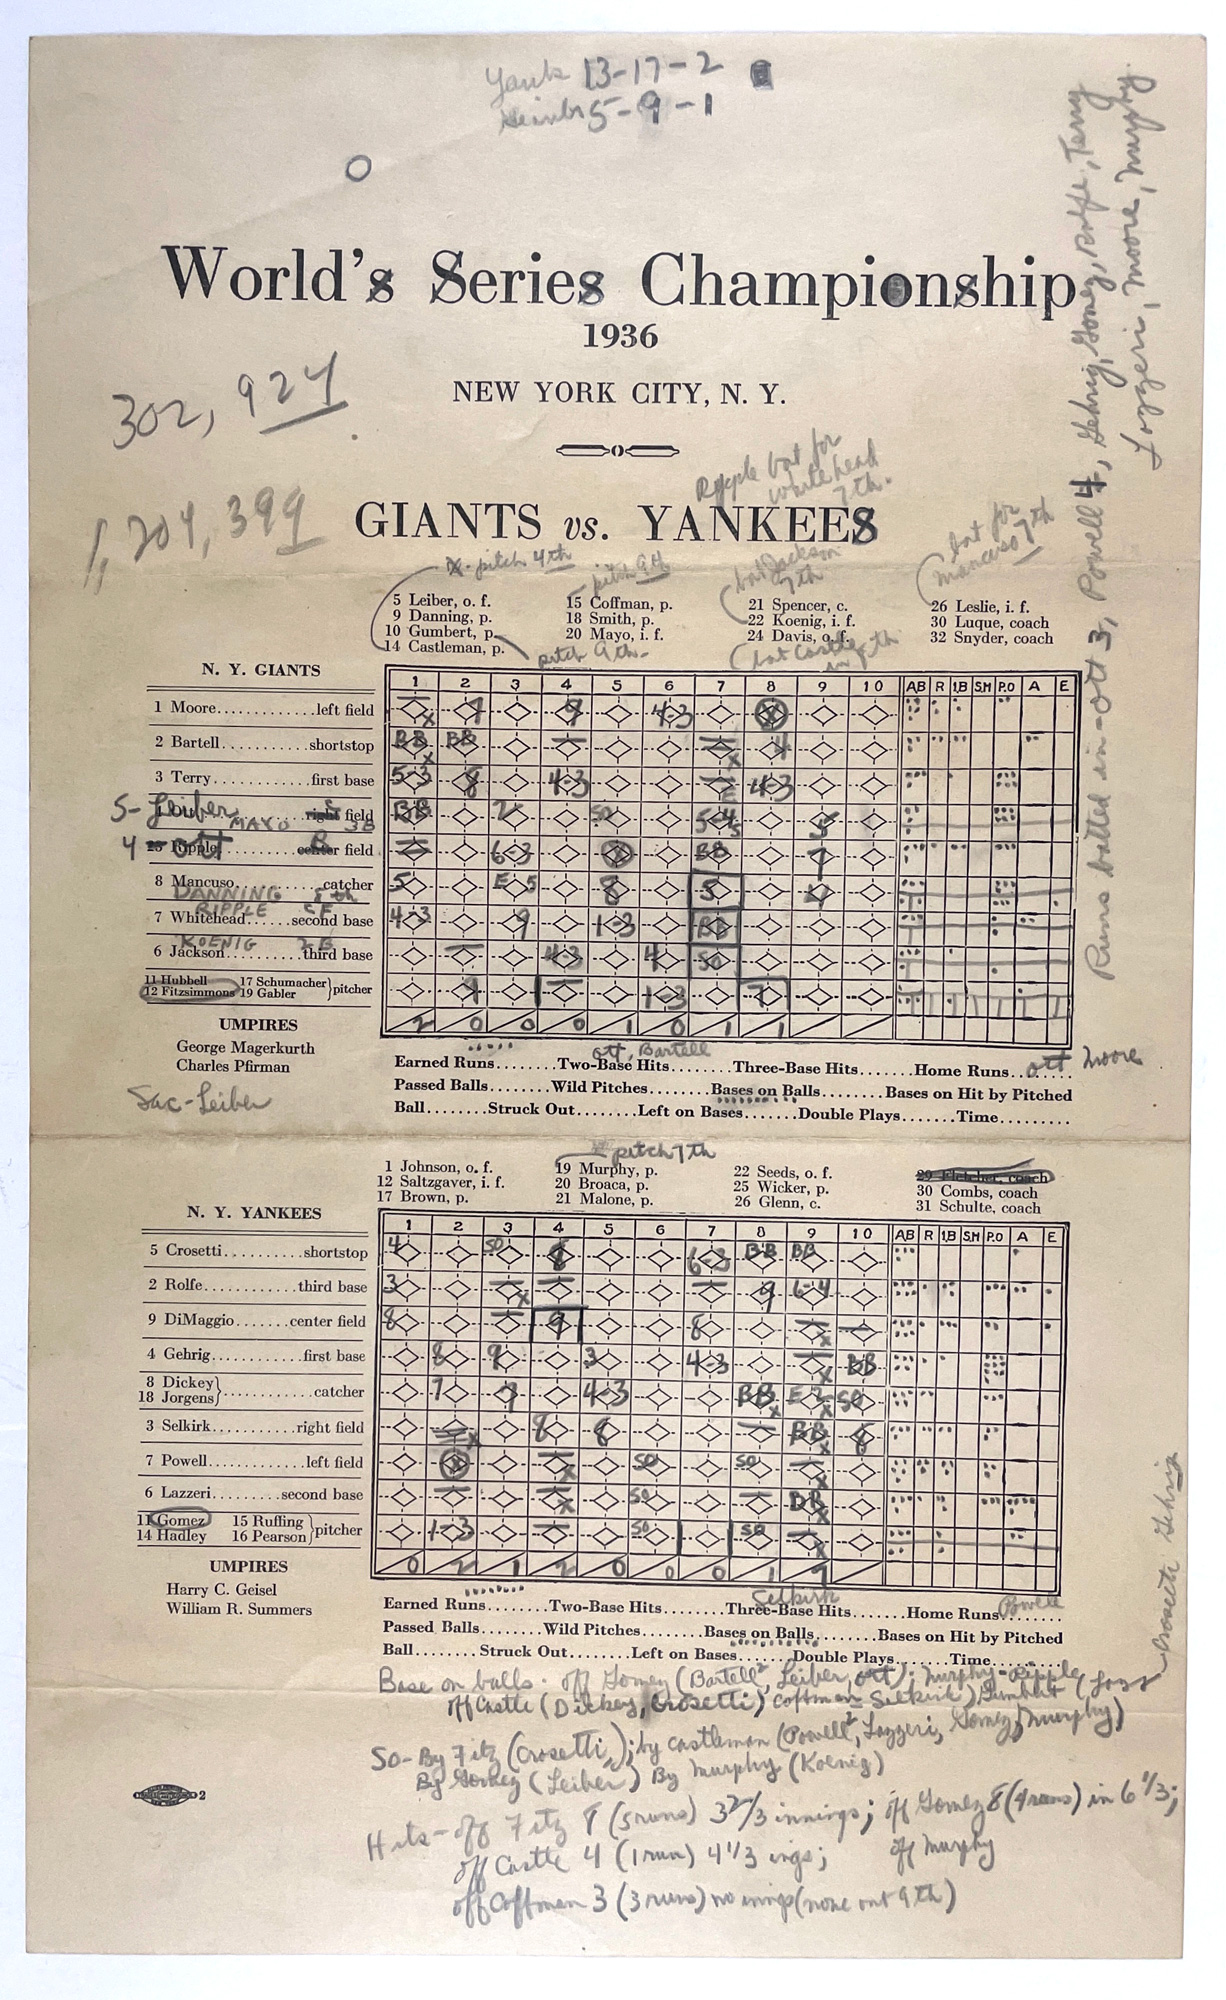 Yanks 13-17-2
Giants 5-9-1
World's Series Championship
1936
NEW YORK CITY, N. Y.
302,924
Ripple bat for
Whitehead
7th.
1,204,399
GIANTS vs. YANKEES
pitch 4th
pitch 9th
bat Jackson
7th
bat for
Mancuso 7th
5 Leiber, o. f.
9 Danning, p.
10 Gumbert, p.
14 Castleman, p.
15 Coffman, p.
18 Smith, p.
20 Mayo, i. f.
21 Spencer, c.
22 Koenig, i. f.
24 Davis, o. f.
26 Leslie, i. f.
30 Luque, coach
32 Snyder, coach
pitch 9th-
(bat Castle
in 8th
Runs batted in - Ott 3, Powell 4, Gehrig, Gomez, Rolfe, Terry
Lazzeri, Moore, Murphy.
N. Y. GIANTS 1 2 3 4 5 6 7 8 9 10 AB R 1B SH P.O A E
1 Moore............left field 9 9 4-3
2 Bartell..........shortstop BB BB 4
3 Terry ...........first base 5-3 8 4-3 4-3
5- Leiber right field BB 2 SO 5-4 5
MAYO 3B
4 25 Ripple Ott center field 6-3 BB 7
8 Mancuso..........catcher 5 E 5 8 5 4
DANNING 8th
RIPPLE CF
7 Whitehead......second base 4-3 9 1-3 BB
KOENIG 2B
6 Jackson..........third base 4-3 4 SO
11 Hubbell 17 Schumacher
12 Fitzsimmons 19 Gabler pitcher 9 1-3 7
2 0 0 0 1 0 1 1
UMPIRES
George Magerkurth
Charles Pfirman
Ott, Bartell
Earned Runs........Two-Base Hits........Three-Base Hits.......Home Runs Ott Moore
Passed Balls........Wild Pitches........Bases on Balls........Bases on Hit by Pitched
Ball.......Struck Out.......Left on Bases.......Double Plays.......Time............
Sac-Leiber
pitch 7th
1 Johnson, o. f.
12 Saltzgaver, i. f.
17 Brown, p.
19 Murphy, p.
20 Broaca, p.
21 Malone, p.
22 Seeds, o. f.
25 Wicker, p.
26 Glenn, c.
29 Fletcher, coach
30 Combs, coach
31 Schulte, coach
N. Y. YANKEES 1 2 3 4 5 6 7 8 9 10 AB R 1B SH P.O A E
5 Crosetti............shortstop 4 SO 8 6-3 BB BB
2 Rolfe................third base 3 9 6-4
9 DiMaggio.......center field 8 9 8
4 Gehrig............first base 8 9 3 4-3 BB
8 Dickey
18 Jorgens ............catcher 7 7 4-3 BB E-2 SO
3 Selkirk............right field 8 8 BB 8
7 Powell...............left field SO SO
6 Lazzeri..........second base SO BB
11 Gomez 15 Ruffing
14 Hadley 16 Pearson pitcher 1-3 SO SO
0 2 1 2 0 0 0 1 7
UMPIRES
Harry C. Geisel
William R. Summers
Selkirk Powell
Earned Runs........Two-Base Hits........Three-Base Hits.......Home Runs........
Passed Balls........Wild Pitches........Bases on Balls........Bases on Hit by Pitched
Ball.......Struck Out.......Left on Bases.......Double Plays.......Time............
Base on balls - off Gomez (Bartell 2, Leiber, Ott); Murphy-Ripple
off Castle (Dickey, Crosetti) Coffman-Selkirk) Gumbert (Lazz
Crosetti Gehrig
SO- By Fitz (Crosetti); by Castleman (Powell 2, Lazzeri, Gomez, Murphy)
By Gomez (Leiber) By Murphy (Koenig)
Hits-off Fitz 8 (5 runs) 3 2/3 innings; off Gomez 8 (4 runs) in 6 1/3;
off Castle 4 (1 run) 4 1/3 ings; off Murphy
off Coffman 3 (3 runs) no inngs (none out 9th)
2